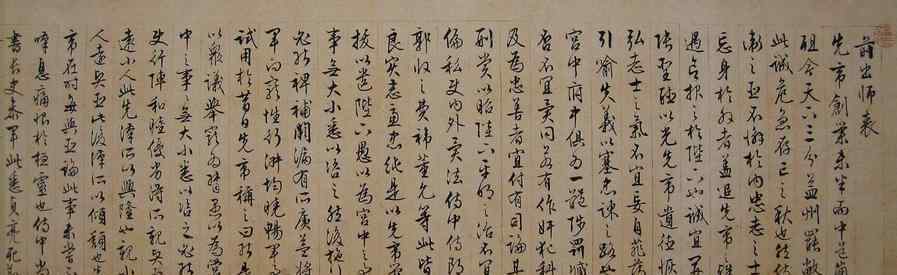 前出師表
先帝創業未半而中道崩
殂今天下三分益州罷敝
此誠危急存亡之秋也然侍
衛之臣不懈於內忠志之士
忘身於外者蓋追先帝之殊
遇欲報之於陛下也誠宜開
張聖聽以光先帝遺德恢
弘志士之氣不宜妄自菲薄
引喻失義以塞忠諫之路也
宮中府中俱為一體陟罰臧
否不宜異同若有作奸犯科
及為忠善者宜付有司論其
刑賞以昭陛下平明之治不宜
偏私使內外異法侍中侍郎
郭攸之費禕董允等此皆
良實志慮忠純是以先帝簡
拔以遺陛下愚以為宮中之
事無大小悉以咨之然後施行
必能裨補闕漏有所廣益將
軍向寵性行淑均曉暢軍事
試用於昔日先帝稱之曰能是
以眾議舉寵為督愚以為營
中之事無大小悉以咨之必能
使行陣和睦優劣得所親賢臣
遠小人此先漢所以興隆也親小
人遠賢臣此後漢所以傾頹也先
帝在時每與臣論此事未嘗不
嘆息痛恨於桓靈也侍中尚
書長史參軍此悉貞亮死